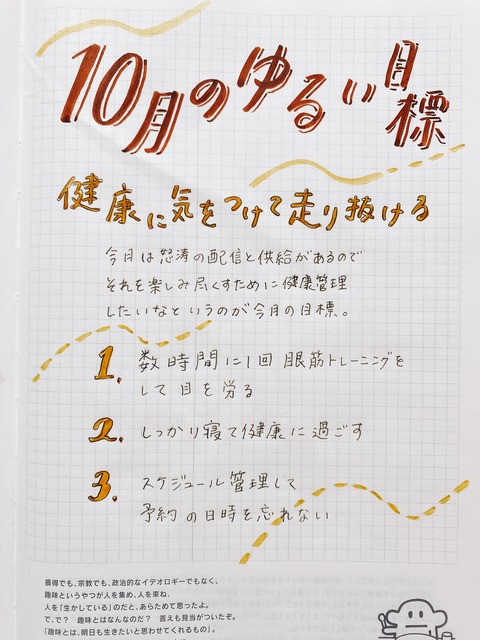 10月のゆるい目標
健康に気をつけて走り抜ける
今月は怒涛の配信と供給があるので
それを楽しみ尽くすために健康管理
したいなというのが今月の目標。
1. 数時間に1回 眼筋トレーニングを
して目を労る
2. しっかり寝て健康に過ごす
3. スケジュール管理して
予約の日時を忘れない
獲得でも、宗教でも、政治的なイデオロギーでもなく、
趣味というやつが人を集め、人を束ね、
人を「生かしている」のだと、あらためて思ったよ。
で、で? 趣味とはなんなのだ? 答えも見当がついたぞ。
「趣味とは、明日も生きたいと思わせてくれるもの」。